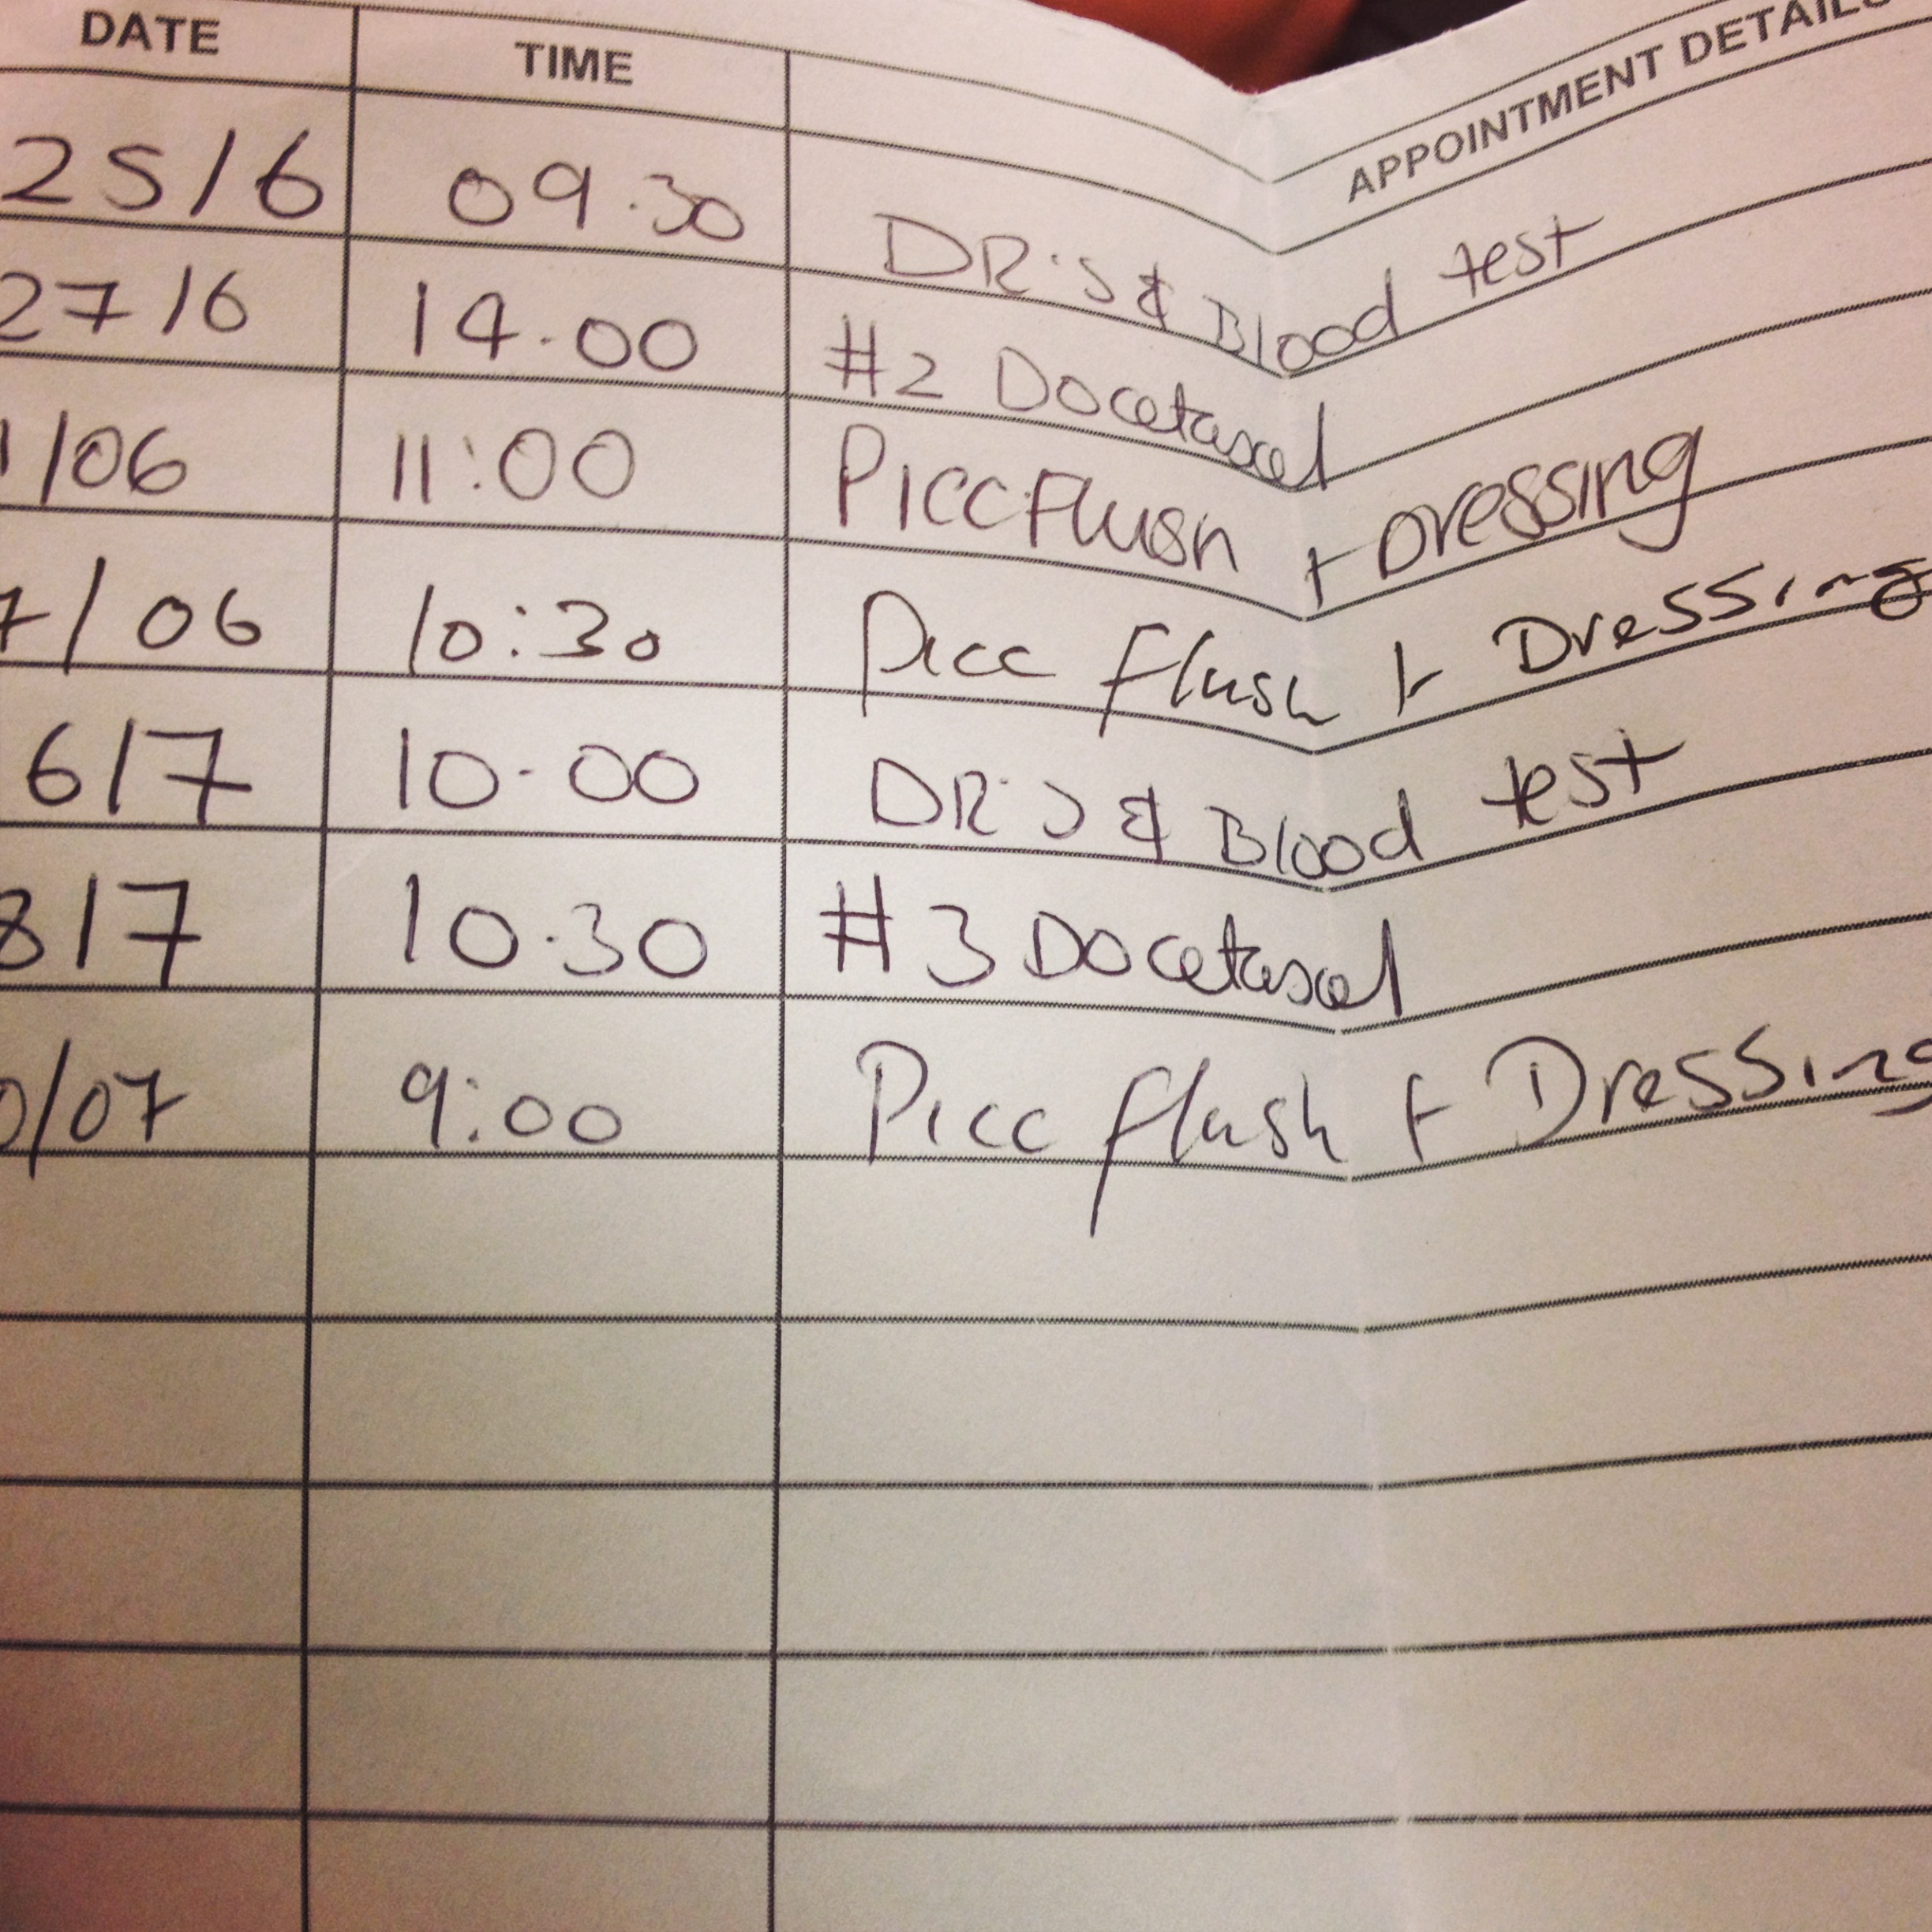 DATE TIME APPOINTMENT DETAILS
25/6 09.30 DR.S & Blood test
27/6 14.00 #2 Docetaxel
1/06 11:00 PICC Flush + Dressing
7/06 10:30 Picc flush + Dressing
6/7 10.00 DR.S & Blood test
8/7 10.30 #3 Docetaxel
0/07 9:00 Picc flush + Dressing